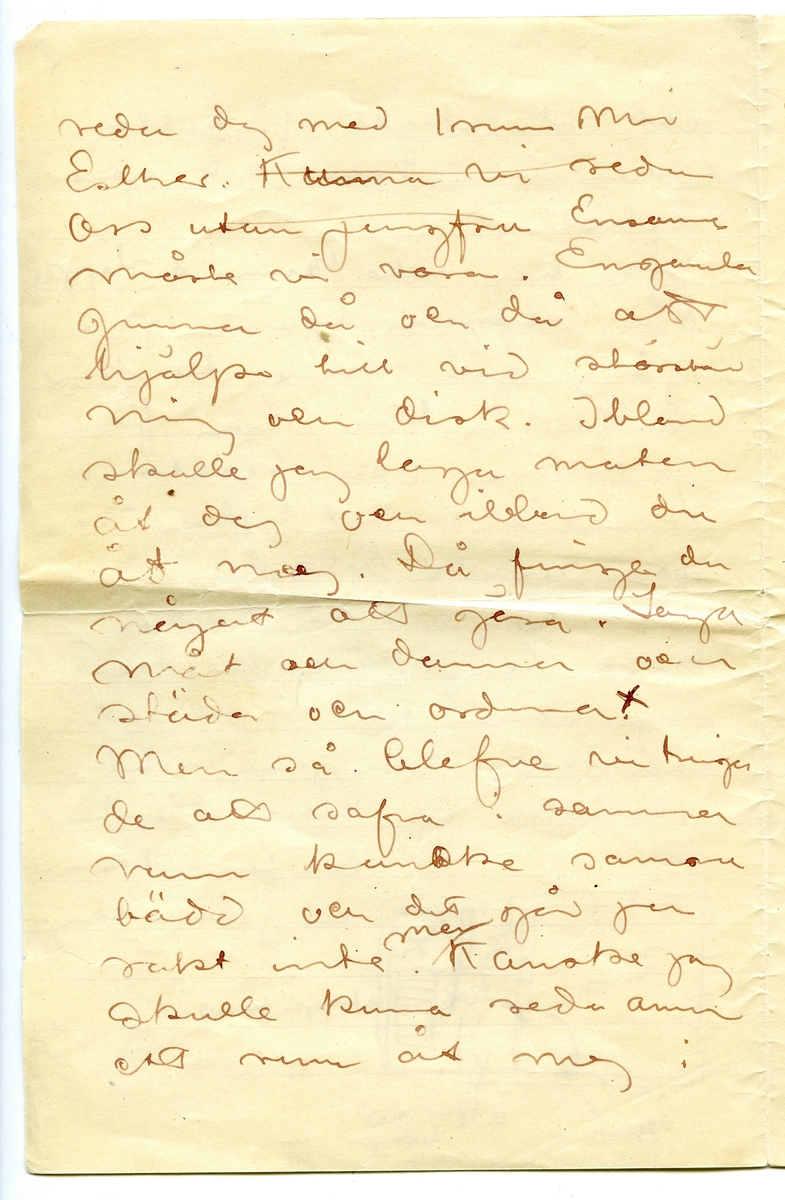 reda dig med 1 rum Min
Esther. Kunna vi reda
oss utan jungfru Ensamma
måste vi vara. En gamla
gumma då och då att
hjälpa till vid storstäd
ning och disk. Ibland
skulle jag laga maten
åt dig och ibland du
åt mig. Då finge du
något att göra. Laga
mat och damma och
städa och ordna.
Men så blefve vi tvinga
de att sofva i samma
rum kanske samma
bädd och det går ju
rakt inte men. Kanske jag
skulle kunna reda annu
ett rum åt mig i